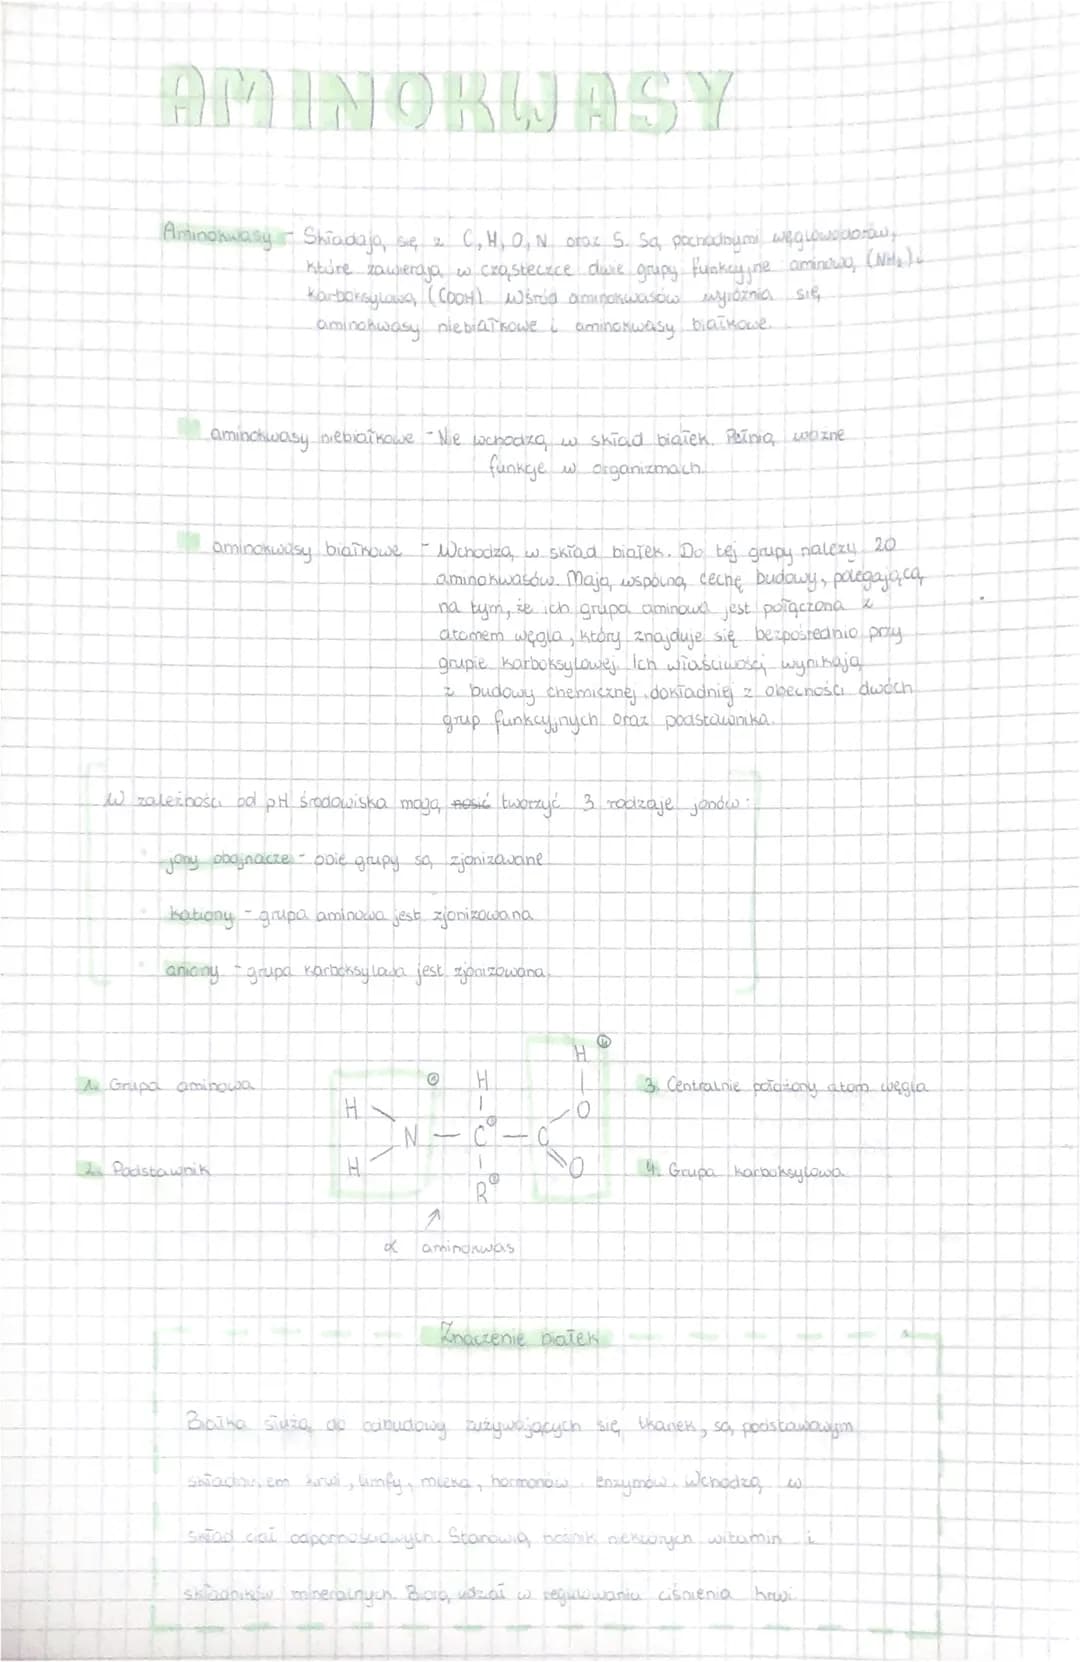 AMINOKWASY
Aminokwasy - Składają się z C, H, O, N oraz S. Są pochodnymi węglowodorów,
które zawierają w cząsteczce dwie grupy funkcyjne aminową (NH₂) i
karboksylową (COOH). Wśród aminokwasów wyróżnia się
aminokwasy niebiałkowe i aminokwasy białkowe.
aminokwasy niebiałkowe - Nie wchodzą w skład białek. Pełnią ważne
funkcje w organizmach.
aminokwasy białkowe - Wchodzą w skład białek. Do tej grupy należy 20
aminokwasów. Mają wspólną cechę budowy, polegającą
na tym, że ich grupa aminowa jest połączona z
atomem węgla, który znajduje się bezpośrednio przy
grupie karboksylowej. Ich właściwości wynikają
z budowy chemicznej dokładniej z obecności dwóch
grup funkcyjnych oraz podstawnika.
W zależności od pH środowiska mają nosić tworzyć 3 rodzaje jonów:
jony obojnacze - obie grupy są zjonizowane
kationy - grupa aminowa jest zjonizowana
aniony - grupa karboksylowa jest zjonizowana
1. Grupa aminowa
2. Podstawnik
H H
H N — C — C O
H R O
3. Centralnie położony atom węgla
4. Grupa karboksylowa
α aminokwas
Znaczenie białek
Białka służą do odbudowy zużywających się tkanek, są podstawowym
składnikiem krwi, limfy, mleka, hormonów enzymów. Wchodzą w
skład ciał odpornościowych. Stanowią nośnik niektórych witamin i
składników mineralnych. Biorą udział w regulowaniu ciśnienia krwi.